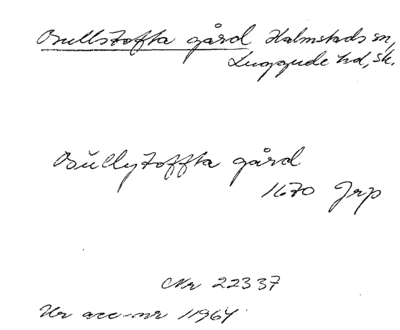 Bullstofta gård Halmstads sn,
Luggude hd, Sk.
Bŭllytoffta gård
1670 Jrp
Nr 22337
Ur acc-nr 11964